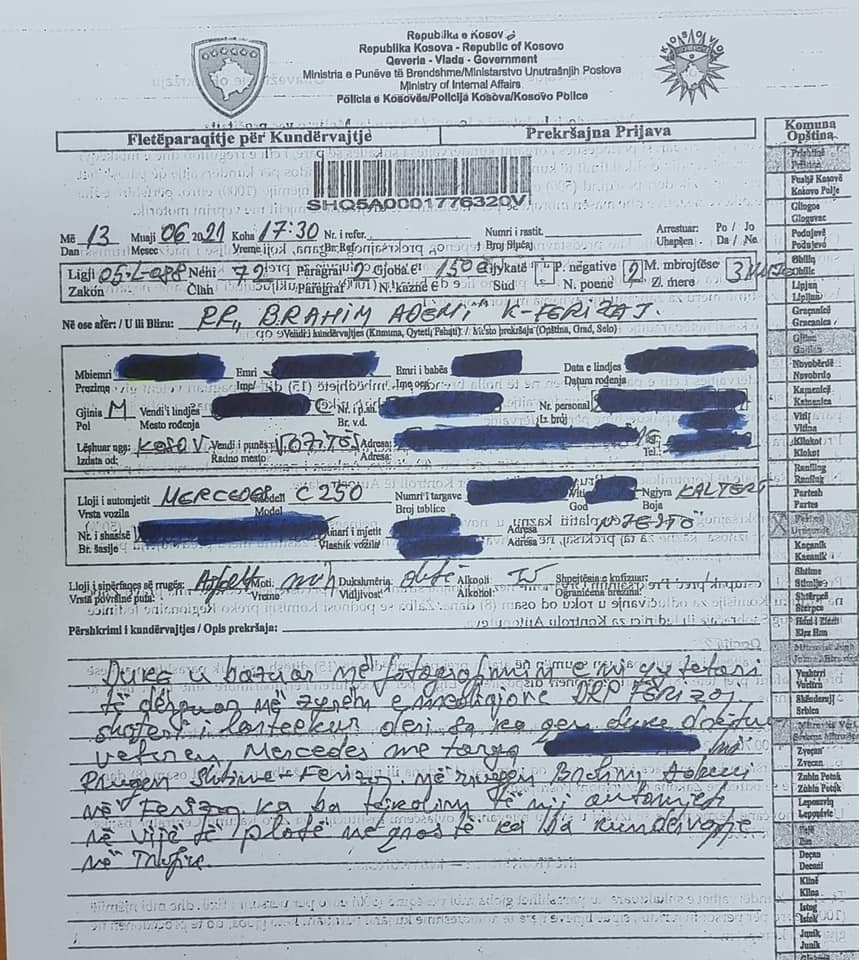 Republika e Kosovës
Republika Kosova - Republic of Kosovo
Qeveria - Vlada - Government
Ministria e Punëve të Brendshme/Ministarstvo Unutrašnjih Poslova
Ministry of Internal Affairs
Policia e Kosovës/Policija Kosova/Kosovo Police
KOSOVO
Fletëparaqitje për Kundërvajtje Prekršajna Prijava
SHQ5A0001776320V
Më 13 Muaji 06 2021 Koha 17:30 Nr. i refer. Numri i rastit. Arrestuar: Po / Jo
Dan Mesec Vreme Br. Ref. Broj Slučaj Uhapšen: Da / Ne
Ligji 05-L-088 Neni 72 Paragrafi 2 Gjoba € 150 Gjykatë P. negative 2 M. mbrojtëse 3 MUAJ
Zakon Član Paragraf N. kazne € Sud N. poene Z. mere
Në ose afër: / U ili Blizu: RR,, BRAHIM ADEMI" K-FERIZAJ.
Vendi i kundërvajtjes (Komuna, Qyteti, Fshati): / Mjesto prekršaja (Opština, Grad, Selo)
Mbiemri Emri Emri i babës Data e lindjes
Prezime Ime Ime oca Datum rođenja
Gjinia M Vendi i lindjes Nr. i p.sh. Nr. personal
Pol Mesto rođenja Br. v.d. Lz broj
Lëshuar nga: KOSOV Vendi i punës VOZITËS Adresa:
Izdata od: Radno mesto Adresa: Tel.:
Lloji i automjetit MERCEDES Modeli C 250 Numri i targave Viti Ngjyra KALTERT
Vrsta vozila Model Broj tablice God Boja
Nr. i shasisë Pronari i mjetit Adresa "NJEJTO"
Br. šasije Vlasnik vozila Adresa
Lloji i sipërfaqes së rrugës: Asfalt Moti: mirë Dukshmëria: ditë Alkooli Shpejtësia e kufizuar:
Vrsta površine puta: Vreme Vidljivost: Alkohol: Ograničena brzina:
Përshkrimi i kundërvajtjes / Opis prekršaja:
Duke u bazuar në fotografimin e një qytetari
të dërguar në zyrën e inteligjore DRP Ferizaj
shoferi i lartcekur deri sa ka qen duke drejtu
veturen Mercedes me targa në
Rrugen Shtime - Ferizaj në rrugen Brahim Ademi
në Ferizaj ka ba tejkalim të nji automjeti
në vijë të plotë me ças të ka ba kundervajtje
në Trafik.
Komuna
Opština
Prishtinë
Priština
Fushë Kosovë
Kosovo Polje
Gllogoc
Glogovac
Podujevë
Podujevo
Obiliq
Obilic
Lipjan
Lipljan
Graçanicë
Gracanica
Gjilan
Gnjilane
Novobërdë
Novobrdo
Kamenicë
Kamenica
Viti
Vitina
Kllokot
Klokot
Ranillug
Ranilug
Partesh
Partes
Ferizaj
Urosevac
Kaçanik
Kacanik
Shtime
Stimlje
Shtërpcë
Sterpce
Hani i Elezit
Elez Han
Vushtrri
Vucitrn
Skënderaj
Srbica
Zveçan
Zvecan
Zubin Potok
Zubin Potok
Leposaviq
Leposavic
Pejë
Pec
Deçan
Decani
Klinë
Klina
Istog
Istok
Junik
Junik